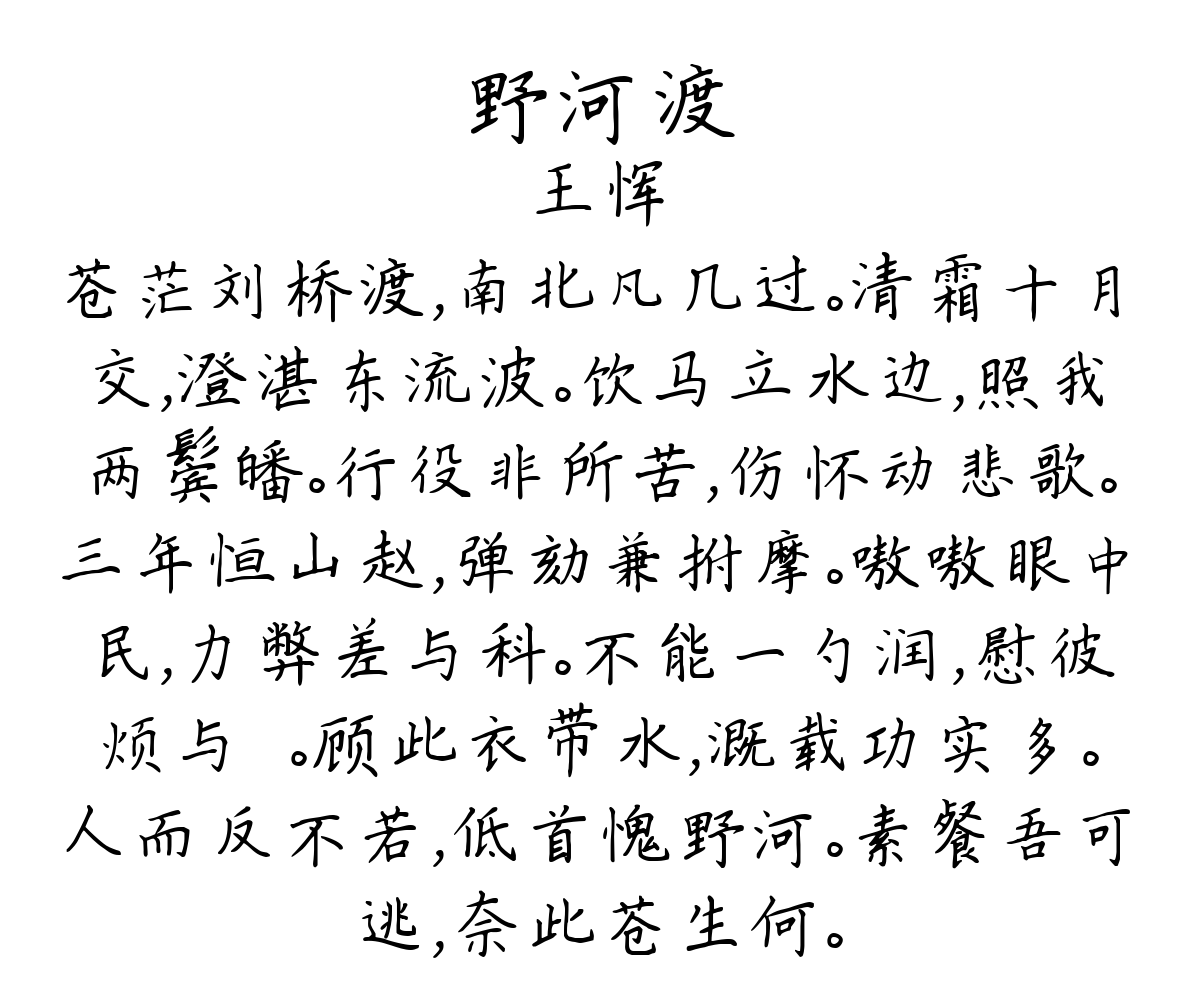 野河渡
王恽
苍茫刘桥渡,南北凡几过。清霜十月
交,澄湛东流波。饮马立水边,照我
两鬓皤。行役非所苦,伤怀动悲歌。
三年恒山赵,弹劾兼拊摩。嗷嗷眼中
民,力弊差与科。不能一勺润,慰彼
烦与 。顾此衣带水,溉载功实多。
人而反不若,低首愧野河。素餐吾可
逃,奈此苍生何。